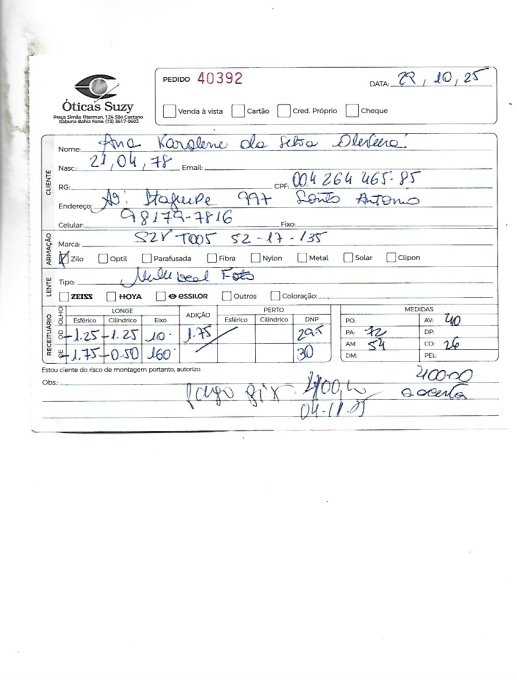 Óticas Suzy
Praça Simão Fiterman, 124 São Caetano
Itabuna-Bahia Fone (73) 3617-0603
PEDIDO 40392
DATA: 22, 10, 25
Venda à vista Cartão Cred. Próprio Cheque
CLIENTE
Nome: Ana Karolene da Silva Oliveira
Nasc.: 21, 04, 78 Email:
RG: CPF: 004 264 465.85
Endereço: Av: Itajuipe 797 Santo Antonio
Celular: 98179-7816 Fixo:
ARMAÇÃO
Marca: SZY T005 52-17-135
x Zilo Optil Parafusada Fibra Nylon Metal Solar Clipon
LENTE
Tipo: Multifocal Foto
ZEISS HOYA ESSILOR Outros Coloração:
RECEITUÁRIO
OLHO LONGE ADIÇÃO PERTO DNP MEDIDAS
Esférico Cilíndrico Eixo Esférico Cilíndrico
OD -1.25 -1.25 10. 1.75 29.5
OE -1.75 -0.50 160. 30
PO: AV: 40
PA: 72 DP:
AM: 54 CO: 26
DM: PEL:
Estou ciente do risco de montagem portanto, autorizo
Obs.: 400,00
Pago pix 400,00
04.11.25